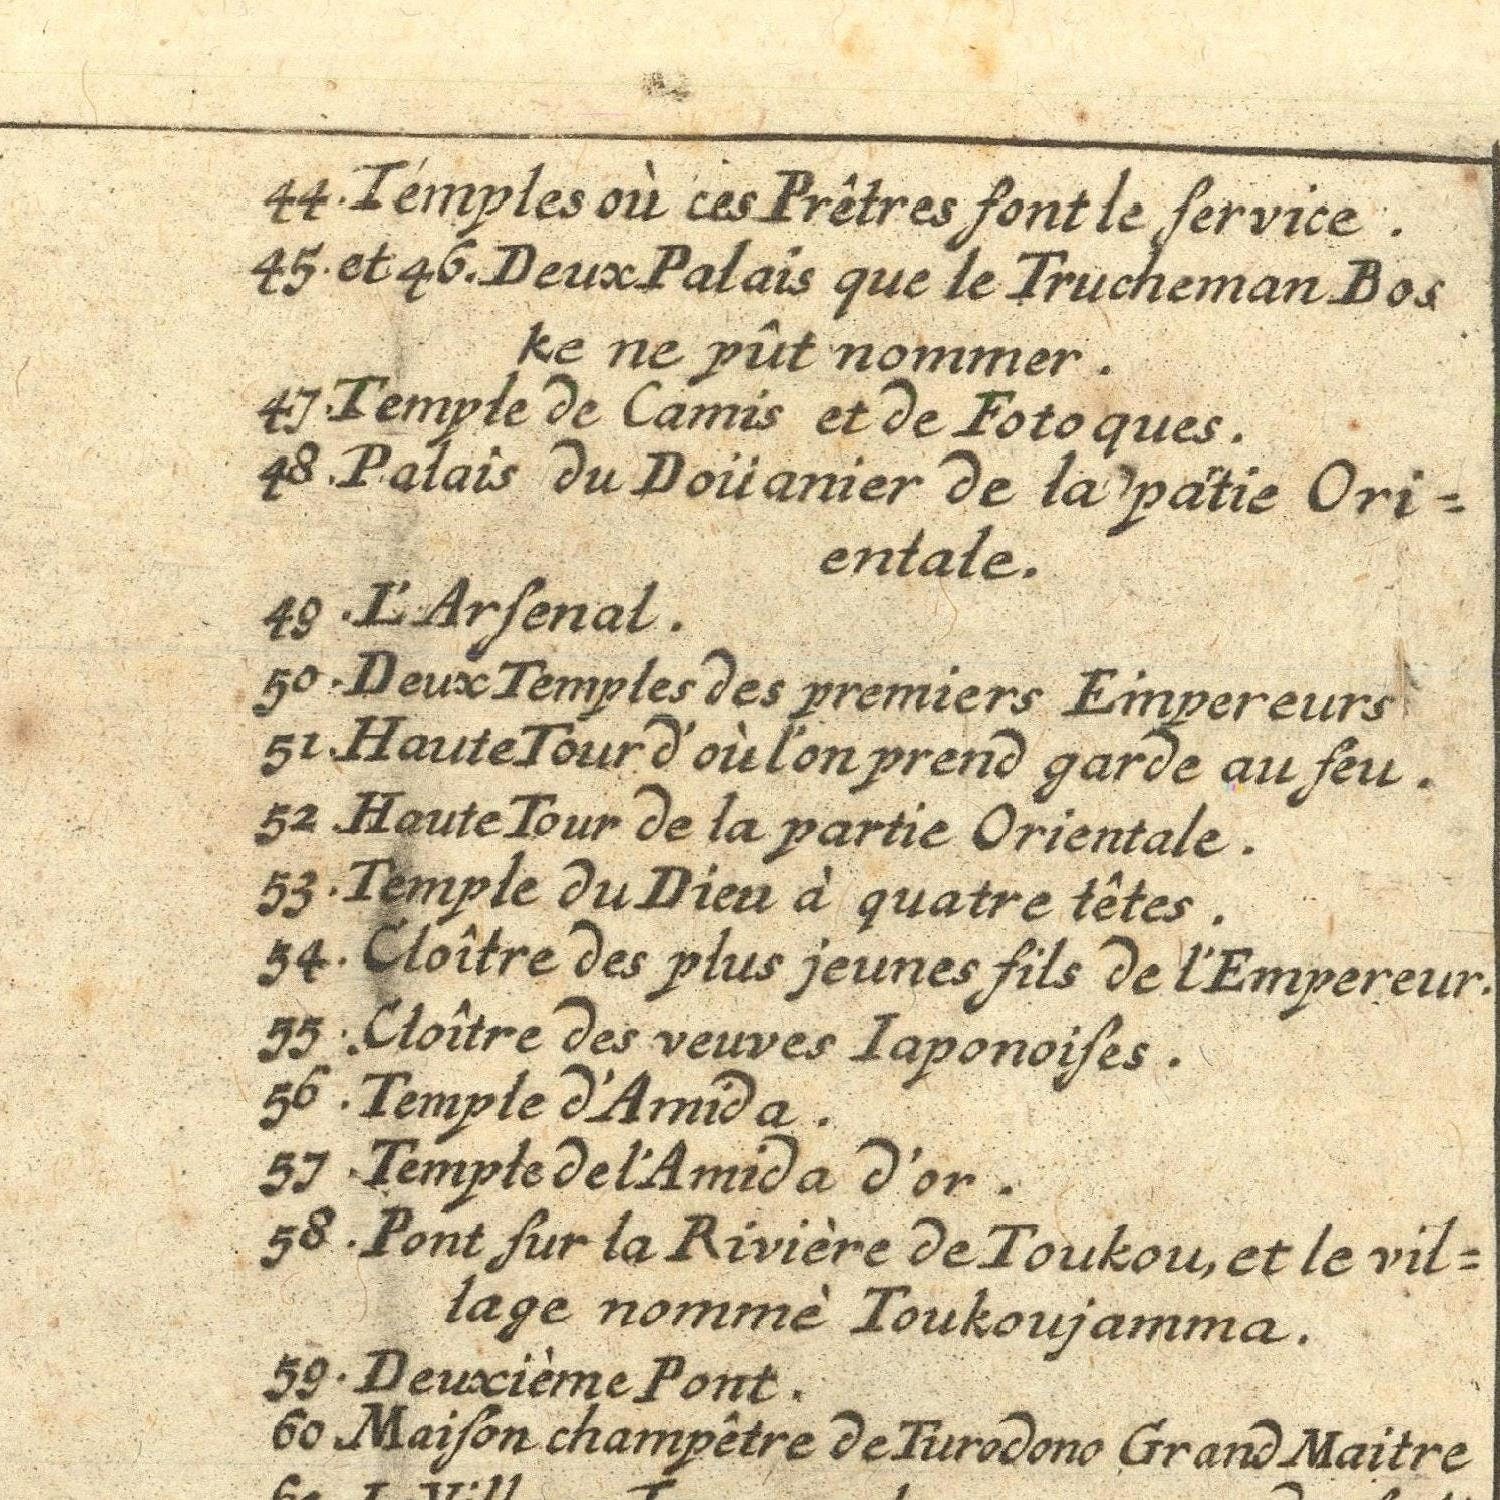 44. Témples où ces Prêtres font le ſervice.
45. et 46. Deux Palais que le Trucheman Bos
ke ne pût nommer.
47. Temple de Camis et de Fotoques.
48. Palais du Doüanier de la patie Ori=
entale.
49. L'Arſenal.
50. Deux Temples des premiers Empereurs
51. Haute Tour d'où l'on prend garde au feu.
52. Haute Tour de la partie Orientale.
53. Temple du Dieu à quatre têtes.
54. Cloître des plus jeunes fils de l'Empereur.
55. Cloître des veuves Iaponoiſes.
56. Temple d'Amida.
57. Temple de l'Amida d'or.
58. Pont ſur la Rivière de Toukou, et le vil=
lage nommè Toukoujamma.
59. Deuxième Pont.
60. Maiſon champêtre de Turodono Grand Maitre